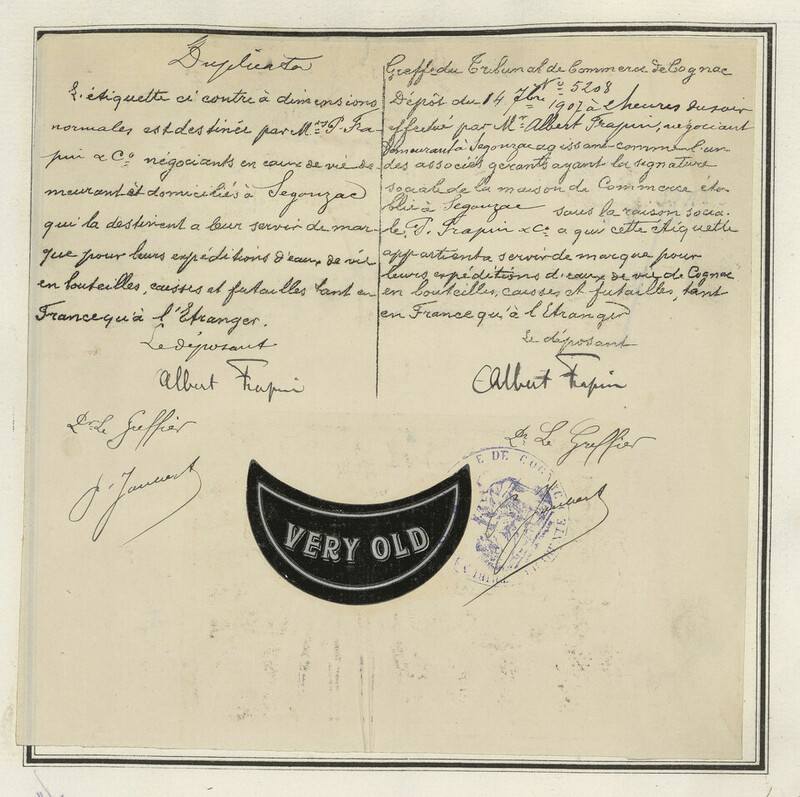 Duplicata
L'étiquette ci contre à dimensions
normales est destinée par Mrs P. Fra-
pin & Co négociants en eaux de vie de-
meurant et domiciliés à Segonzac
qui la destinent a leur servir de mar-
que pour leurs expéditions d'eaux de vie
en bouteilles, caisses et futailles tant en
France qu'à l'Etranger.
Le déposant
Albert Frapin
Le Greffier
Greffe du Tribunal de Commerce de Cognac
No 5208
Dépôt du 14 7bre 1907 à 2 heures du soir
effectué par Mr Albert Frapin, négociant
demeurant à Segonzac agissant comme l'un
des associés gérants ayant la signature
sociale de la maison de Commerce éta-
blie à Segonzac sous la raison socia-
le P. Frapin & Co a qui cette étiquette
appartient a servir de marque pour
leurs expéditions d'eaux de vie de Cognac
en bouteilles, caisses et futailles, tant
en France qu'à l'Etranger
Le déposant
Albert Frapin
Le Greffier
VERY OLD